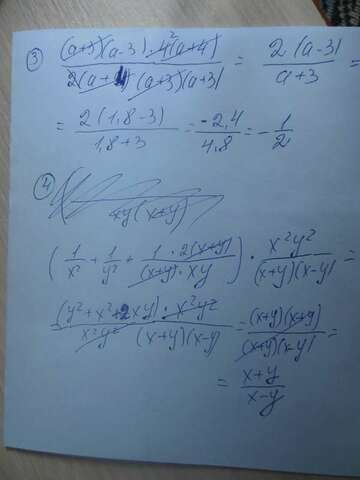 ③ (a+3)(a-3)·4²(a+4) / 2(a+4)(a+3)(a+3) = 2(a-3) / a+3 =
= 2(1,8-3) / 1,8+3 = -2,4 / 4,8 = -1/2
④
xy(x+y)
(1/x² + 1/y² + 1·2(x+y) / (x+y)·xy) · x²y² / (x+y)(x-y) =
(y²+x²+2xy)·x²y² / x²y² (x+y)(x-y) = (x+y)(x+y) / (x+y)(x-y) =
= x+y / x-y